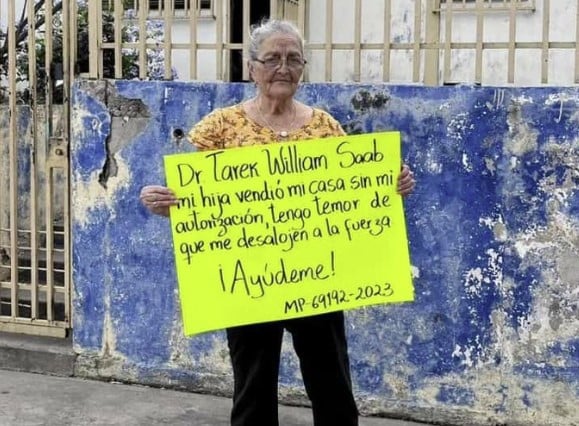 Dr Tarek William Saab
mi hija vendió mi casa sin mi
autorización, tengo temor de
que me desalojen a la fuerza.
¡Ayúdeme!
MP-69192-2023